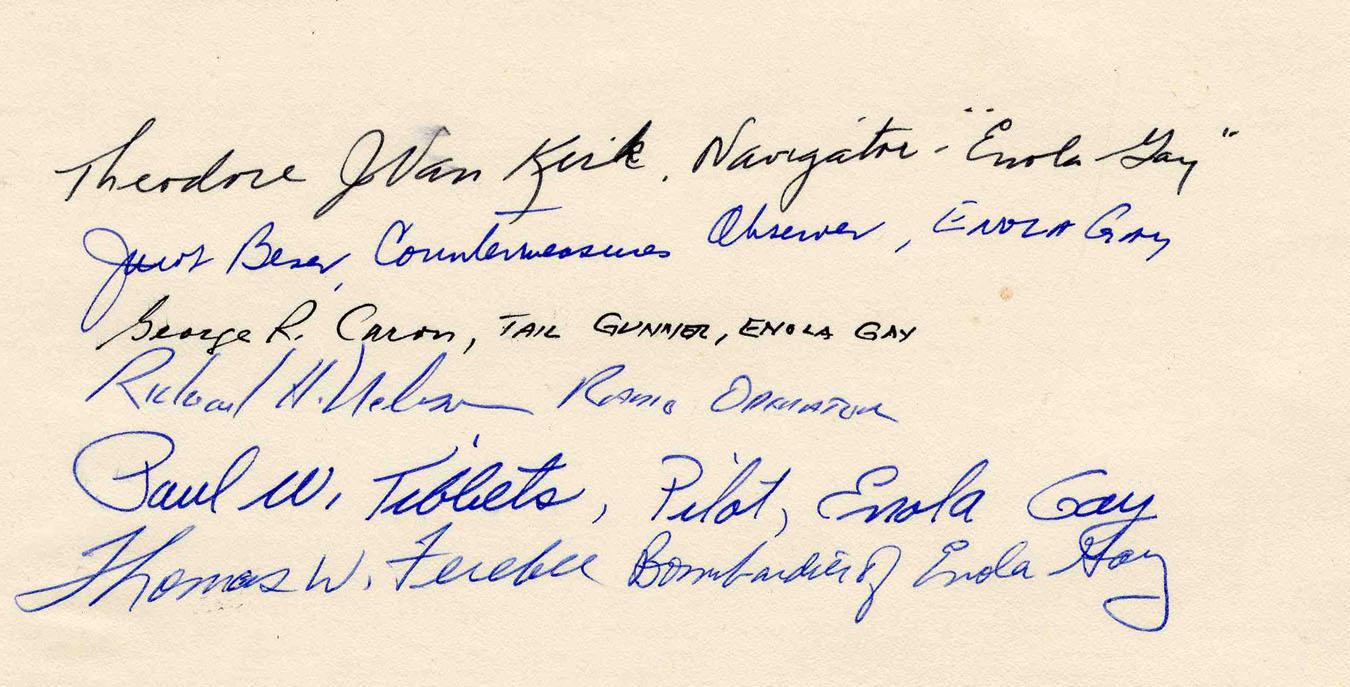 Theodore J Van Kirk, Navigator - "Enola Gay"
Jacob Beser, Countermeasures Observer, ENOLA GAY
George R. Caron, TAIL GUNNER, ENOLA GAY
Richard H. Nelson RADIO OPERATOR
Paul W. Tibbets, Pilot, Enola Gay
Thomas W. Ferebee Bombardier of Enola Gay